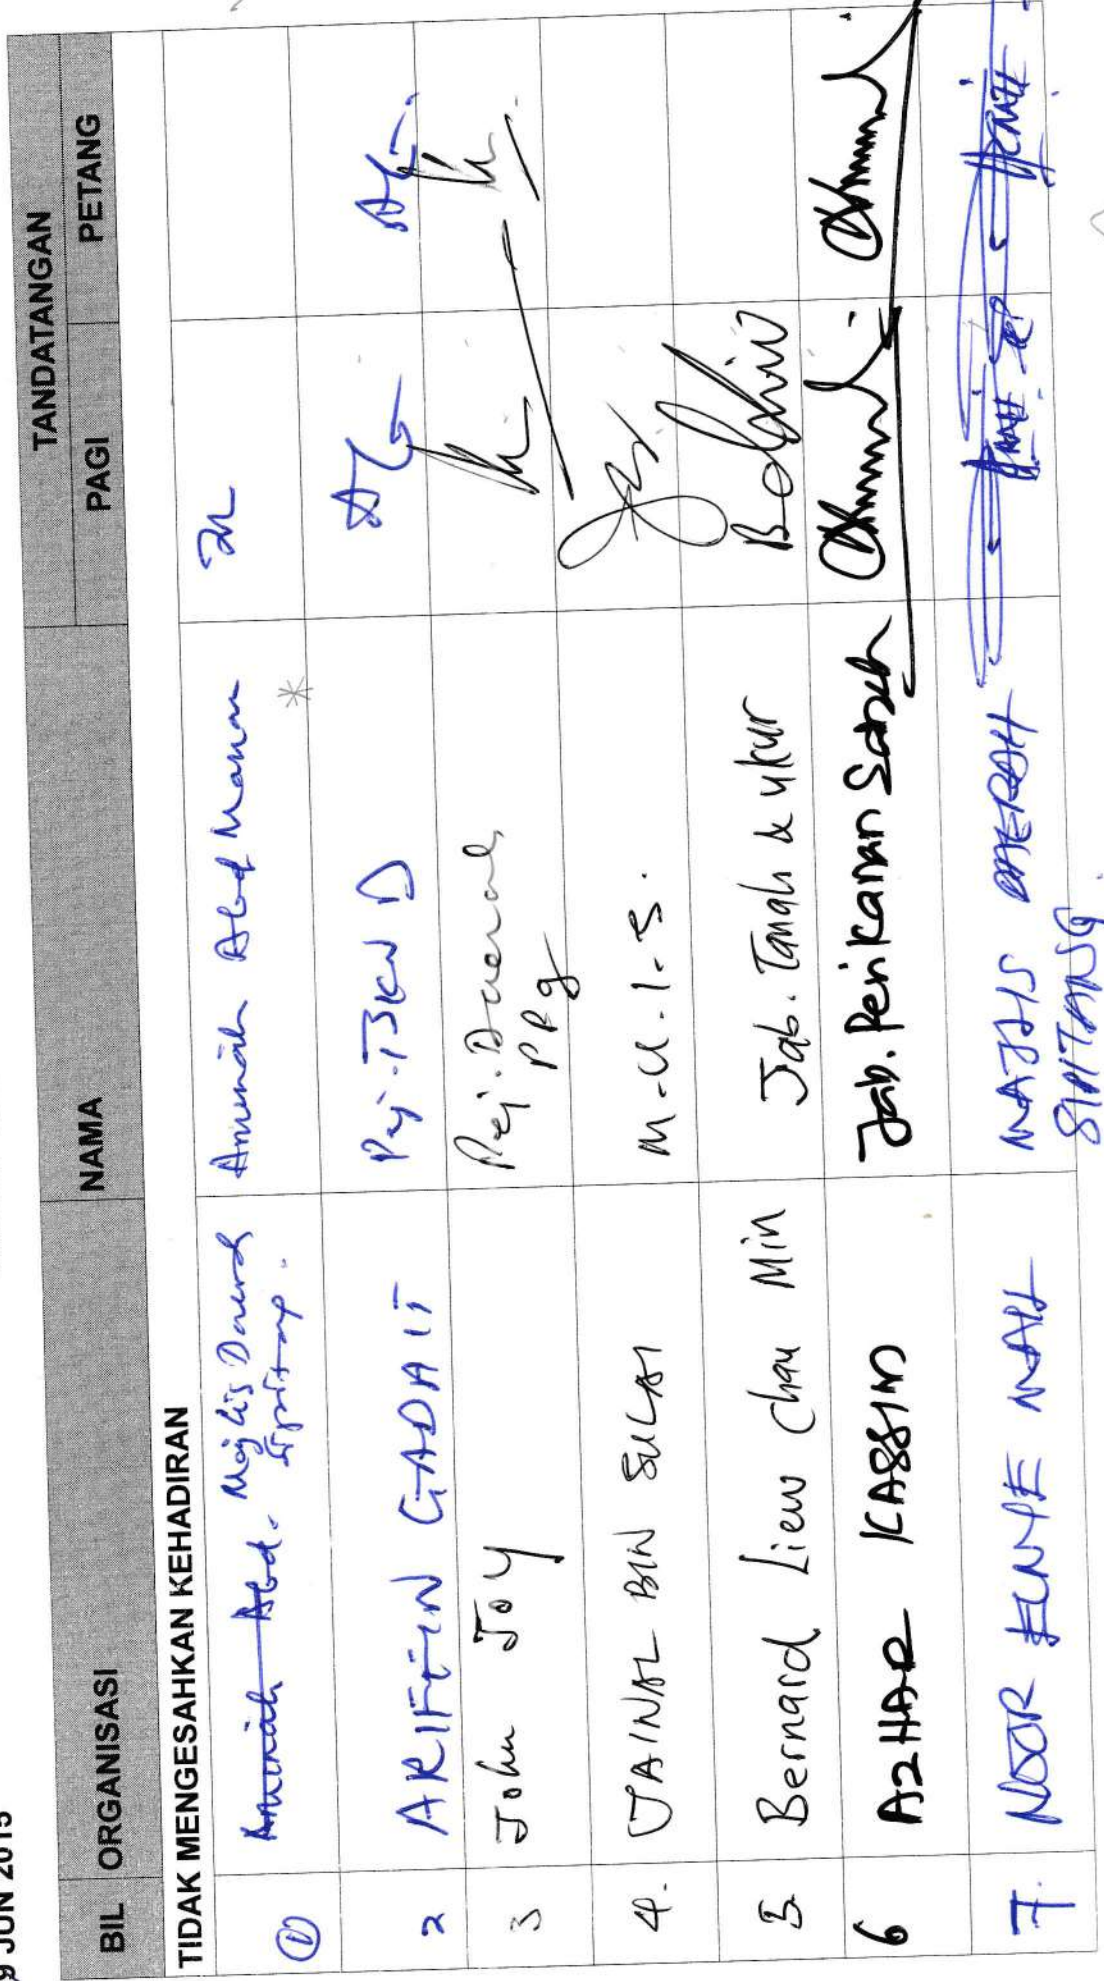 9 JUN 2015
BIL ORGANISASI NAMA TANDATANGAN
PAGI PETANG
TIDAK MENGESAHKAN KEHADIRAN
1 Aminah Abd. Majlis Daerah Aminah Abd Manan
Sipitang.
2 ARIFFIN GADAIT Pej. TKW D
3 John Joy Pej. Daerah
4. JAINAL BIN SULAI M.U.I.S.
5. Bernard Liew Chau Min Jab. Tanah & Ukur
6 AZHAR KASSIM Jab. Perikanan Sabah
7. NOOR ELNIE NAIH MAJLIS DAERAH
SIPITANG